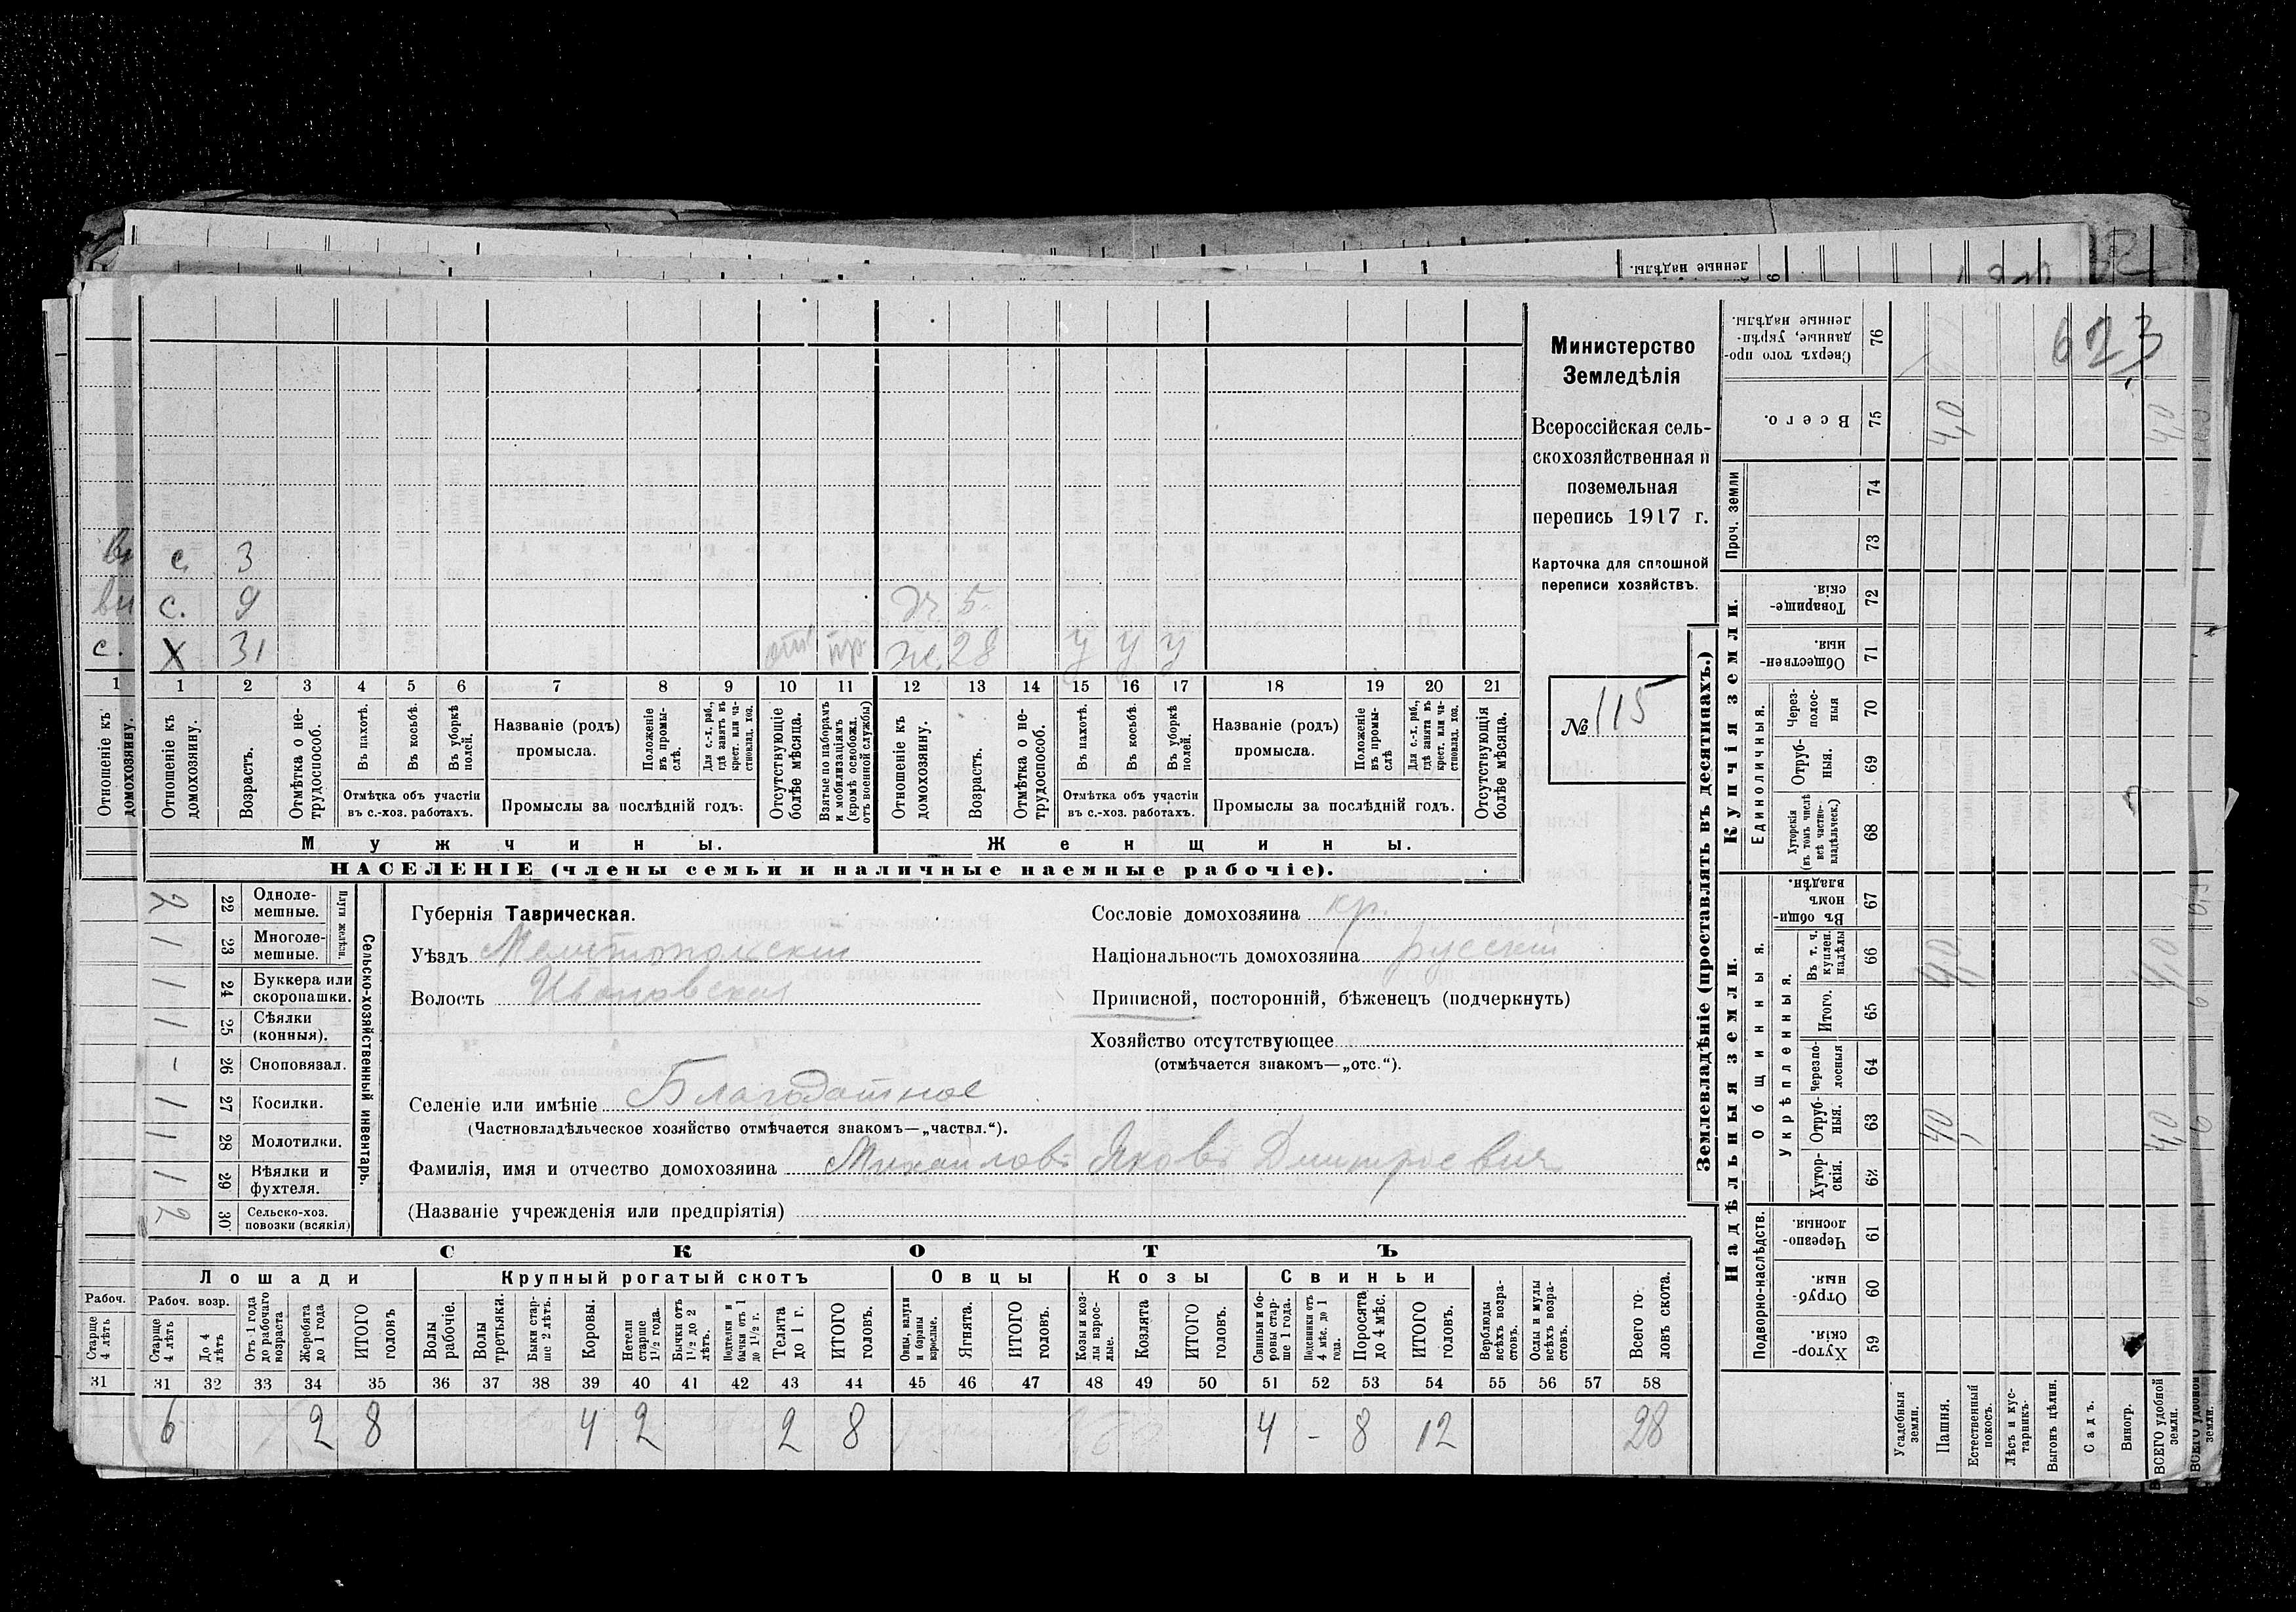 623
Министерство
Земледѣлія
Всероссійская сель-
скохозяйственная и
поземельная
перепись 1917 г.
Карточка для сплошной
переписи хозяйствъ.
№ 115
с. 3
с. 9 5
X 31 ж. 28 у у у
1 1 2 3 4 5 6 7 8 9 10 11 12 13 14 15 16 17 18 19 20 21
Отношеніе къ домохозяину.
Отношеніе къ домохозяину.
Возрастъ.
Отмѣтка о не-трудоспособ.
Въ пахотѣ.
Въ косьбѣ.
Въ уборкѣ полей.
Отмѣтка объ участіи
въ с.-хоз. работахъ.
Названіе (родъ)
промысла.
Положеніе въ промы-слѣ.
Для с.-х. раб., гдѣ занятъ въ крест. или ча-стновлад. хоз.
Промыслы за послѣдній годъ.
Отсутствующіе болѣе мѣсяца.
Взятые по наборамъ и мобилизаціямъ (кромѣ освобожд. отъ военной службы)
Отношеніе къ домохозяину.
Возрастъ.
Отмѣтка о не-трудоспособ.
Въ пахотѣ.
Въ косьбѣ.
Въ уборкѣ полей.
Отмѣтка объ участіи
въ с.-хоз. работахъ.
Названіе (родъ)
промысла.
Положеніе въ промы-слѣ
Для с.-х. раб., гдѣ занята въ крест. или ча-стновлад. хоз.
Промыслы за послѣдній годъ.
Отсутствующія болѣе мѣсяца.
Мужчины. Женщины.
НАСЕЛЕНІЕ (члены семьи и наличные наемные рабочіе).
Сельско-хозяйственный инвентарь.
Плуги желѣзн.
2 22 Одноле-мешные.
1 23 Многоле-мешные.
1 24 Буккера или скоропашки.
1 25 Сѣялки (конныя).
- 26 Сноповязал.
1 27 Косилки.
1 28 Молотилки.
1 29 Вѣялки и фухтеля.
2 30 Сельско-хоз. повозки (всякія)
Губернія Таврическая.
Уѣздъ Мелитопольскій
Волость Ивановская
Сословіе домохозяина кр.
Національность домохозяина русскій
Приписной, посторонній, бѣженецъ (подчеркнуть)
Хозяйство отсутствующее
(отмѣчается знакомъ—„отс.“).
Селеніе или имѣніе Благодатное
(Частновладѣльческое хозяйство отмѣчается знакомъ—„частвл.“).
Фамилія, имя и отчество домохозяина Михайловъ Яковъ Дмитріевич
(Названіе учрежденія или предпріятія)
СКОТЪ
Лошади Крупный рогатый скотъ Овцы Козы Свиньи
Рабоч. Рабоч. возр.
Старше 4 лѣтъ
Старше 4 лѣтъ
До 4 лѣтъ
Отъ 1 года до рабочаго возраста
Жеребята до 1 года
ИТОГО головъ
Волы рабочіе.
Волы третьяки.
Быки стар-ше 2 лѣтъ.
Коровы.
Нетели старше 1½ года.
Бычки отъ 1½ до 2 лѣтъ.
Подтелки и бычки отъ 1 до 1½ г.
Телята до 1 г.
ИТОГО головъ.
Овцы, валухи и бараны взрослые.
Ягнята.
ИТОГО головъ.
Козы и коз-лы взрос-лые.
Козлята
ИТОГО головъ.
Свиньи и бо-ровы стар-ше 1 года.
Подсвинки отъ 4 мѣс. до 1 года.
Поросята до 4 мѣс.
ИТОГО головъ.
Верблюды всѣхъ возра-стовъ.
Ослы и мулы всѣхъ возра-стовъ.
Всего го-ловъ скота.
31 31 32 33 34 35 36 37 38 39 40 41 42 43 44 45 46 47 48 49 50 51 52 53 54 55 56 57 58
6 2 8 4 2 2 8 4 - 8 12 28
Землевладѣніе (проставлять въ десятинахъ.)
Надѣльныя земли. Купчія земли.
Подворно-наслѣдств.
Общинныя.
Укрѣпленныя.
Единоличныя.
Проч. земли
Сверхъ того про-данные, укрѣп-ленные надѣлы. 76
Всего. 75 4,0 4,0
74
73
Товарище-скія. 72
Обществен-ныя. 71
Через-полос-ныя 70
Отруб-ныя. 69
Хуторскія (въ томъ числѣ всѣ частно-владѣльческ.) 68
Въ общи-номъ владѣн. 67
Въ т. ч. куплен. надѣлы 66 4,0 4,0
Итого. 65
Черезпо-лосныя 64
Отруб-ныя. 63 4,0 4,0
Хутор-скія. 62
Черезпо-лосныя 61
Отруб-ныя. 60
Хутор-скія. 59
Усадебныя земли.
Пашня.
Естественный покосъ.
Лѣсъ и кус-тарникъ.
Выгонъ цѣлин.
Садъ.
Виногр.
ВСЕГО удобной земли.
ВСЕГО удобной земли.